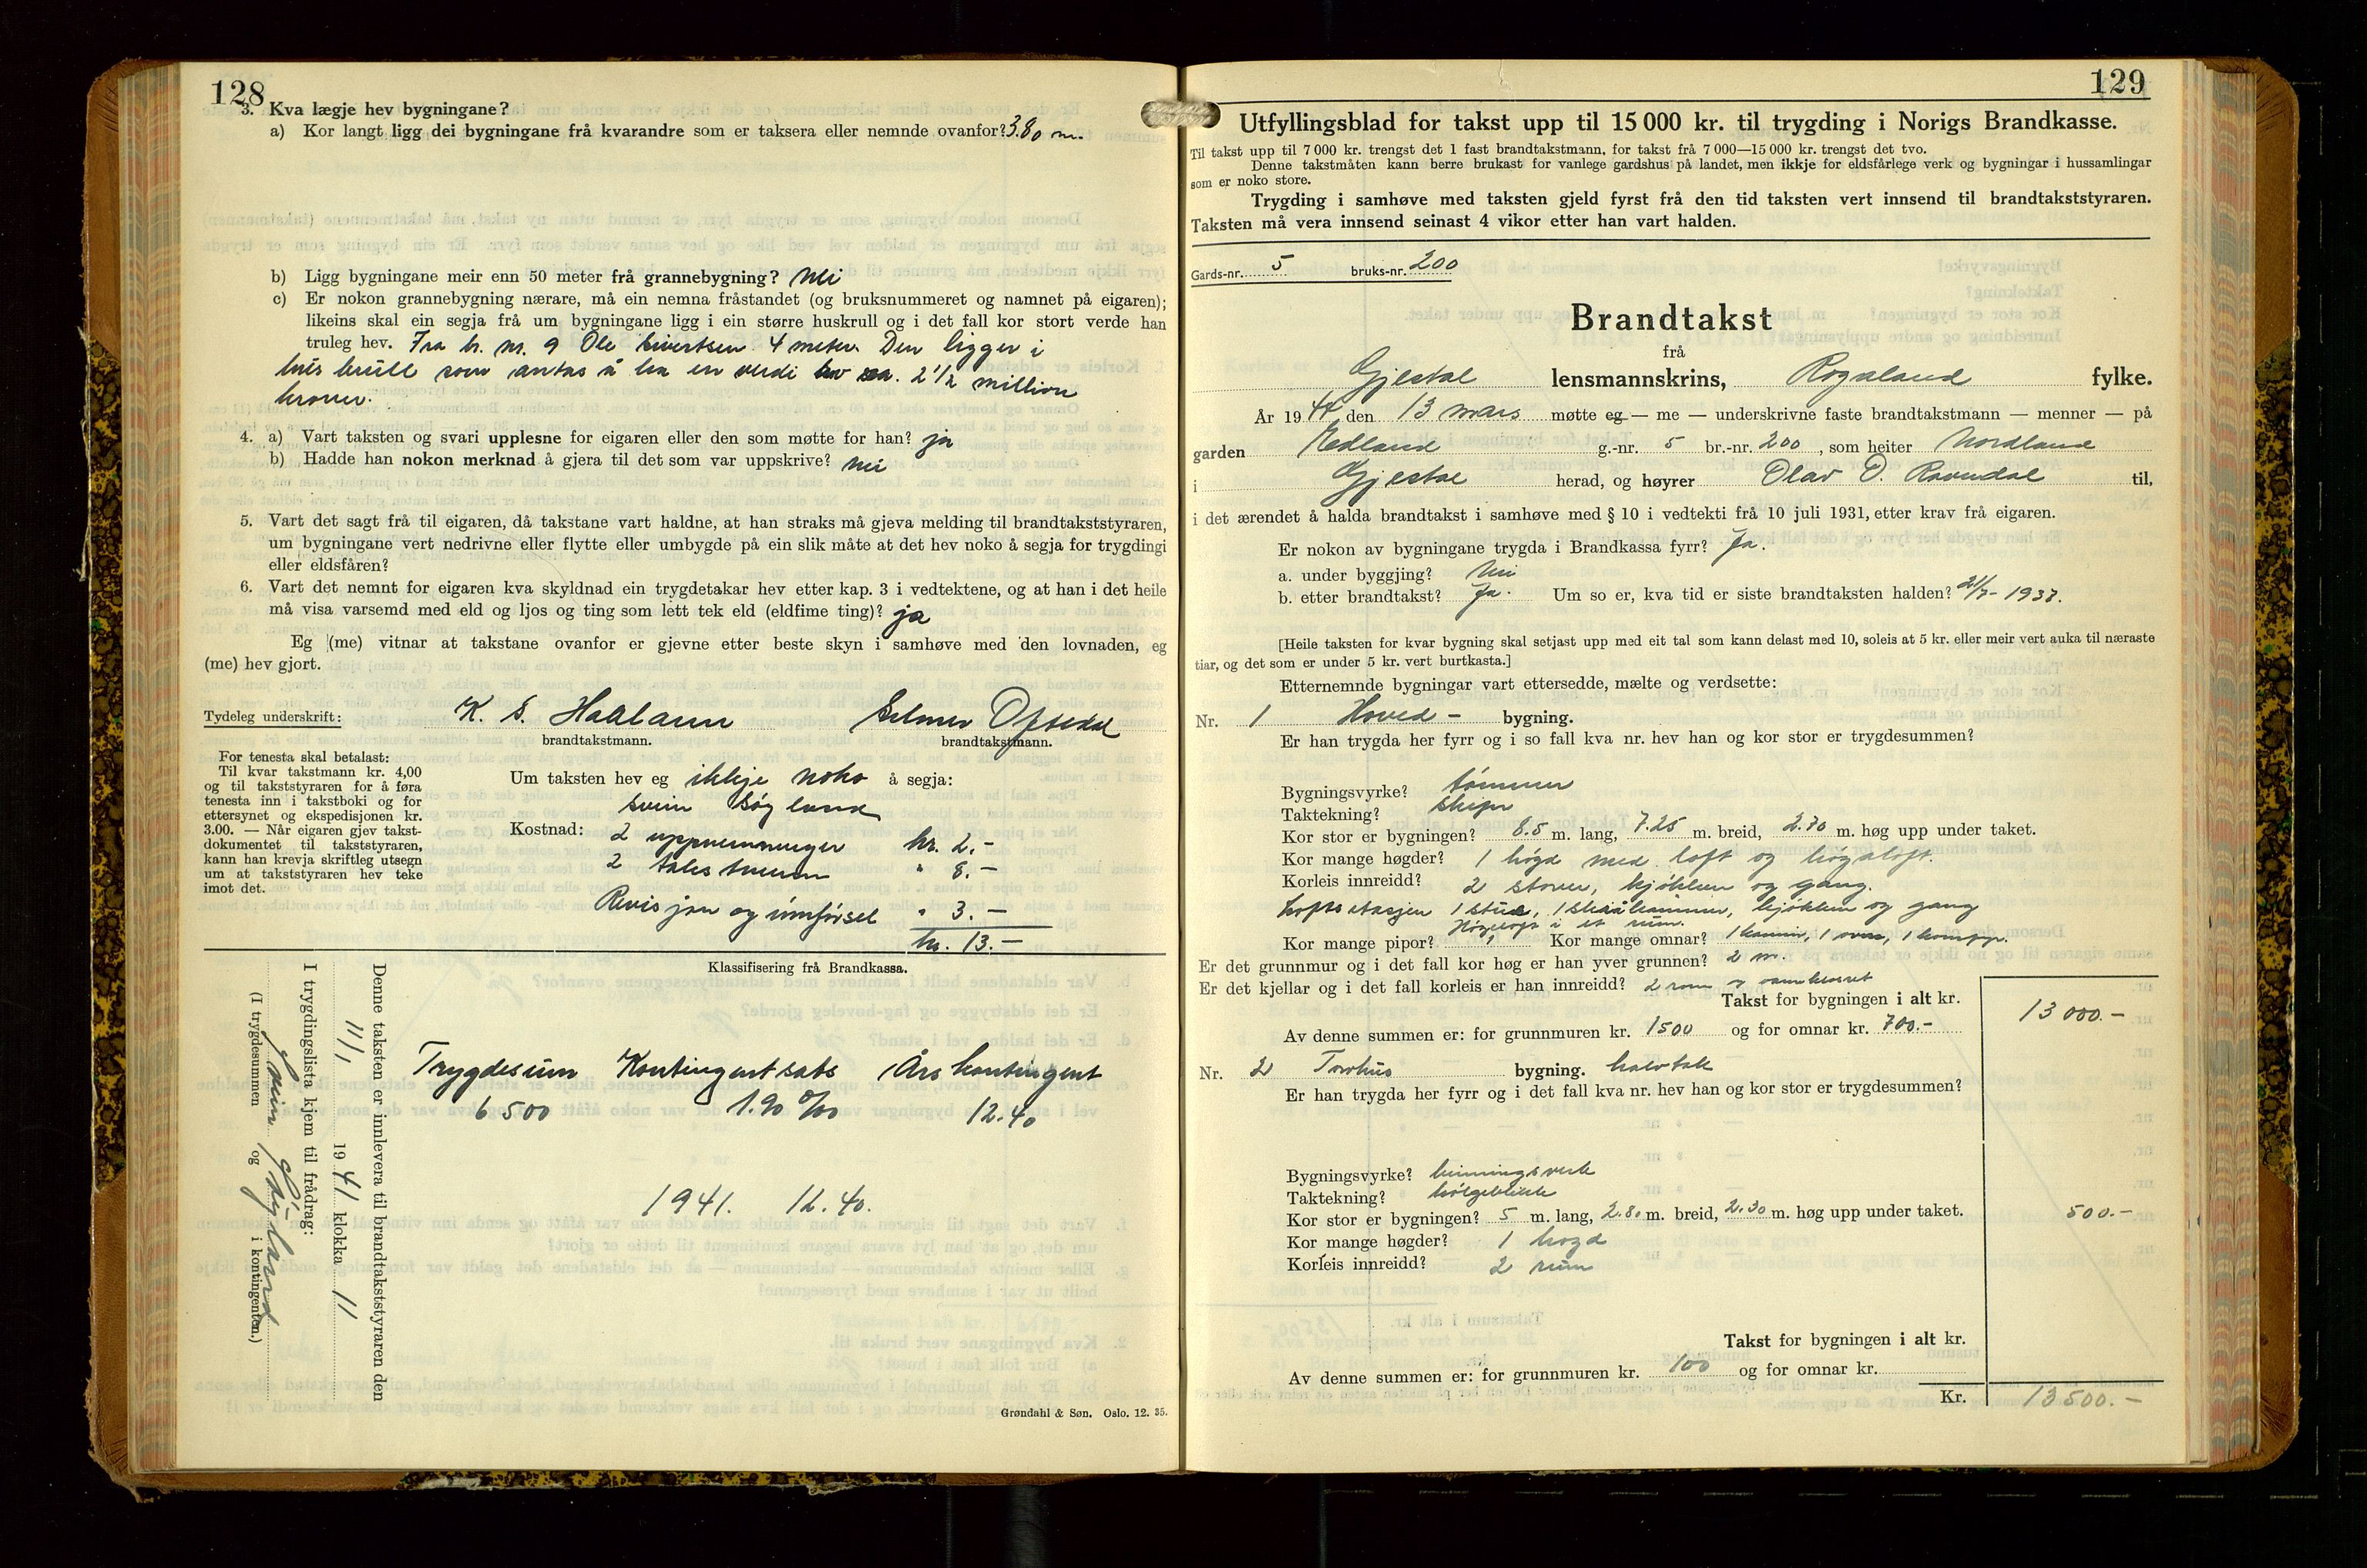 128
3. Kva lægje hev bygningane?
a) Kor langt ligg dei bygningane frå kvarandre som er taksera eller nemnde ovanfor? 3.80 m.
b) Ligg bygningane meir enn 50 meter frå grannebygning? Nei
c) Er nokon grannebygning nærare, må ein nemna fråstandet (og bruksnummeret og namnet på eigaren);
likeins skal ein segja frå um bygningane ligg i ein større huskrull og i det fall kor stort verde han
truleg hev. Fra br. nr. 9 Ole Sivertsen 4 meter. Den ligger i
hus krull som antas å ha en verdi av ca. 2 1/2 million
kroner.
4. a) Vart taksten og svari upplesne for eigaren eller den som møtte for han? ja
b) Hadde han nokon merknad å gjera til det som var uppskrive? Nei
5. Vart det sagt frå til eigaren, då takstane vart haldne, at han straks må gjeva melding til brandtakststyraren,
um bygningane vert nedrivne eller flytte eller umbygde på ein slik måte at det hev noko å segja for trygdingi
eller eldsfåren?
6. Vart det nemnt for eigaren kva skyldnad ein trygdetakar hev etter kap. 3 i vedtektene, og at han i det heile
må visa varsemd med eld og ljos og ting som lett tek eld (eldfime ting)? ja
Eg (me) vitnar at takstane ovanfor er gjevne etter beste skyn i samhøve med den lovnaden, eg
(me) hev gjort.
Tydeleg underskrift: K. S. Haaland Selmer Oftedal
brandtakstmann. brandtakstmann.
For tenesta skal betalast:
Til kvar takstmann kr. 4,00
og til takststyraren for å føra
tenesta inn i takstboki og for
ettersynet og ekspedisjonen kr.
3.00. — Når eigaren gjev takst-
dokumentet til takststyraren,
kann han krevja skriftleg utsegn
um at takststyraren hev teke
imot det.
Um taksten hev eg ikkje noko å segja:
Svein Søyland
Kostnad: 2 uppnemninger kr. 2.-
2 takstmenn " 8.-
Revisjon og innførsel " 3.-
kr. 13.-
Klassifisering frå Brandkassa.
Trygdesum Kontingentsats Års kontingent
6500 1.90 ‰ 12.40
1941. 12.40.
Denne taksten er innlevera til brandtakststyraren den
11/1 1941 klokka 11
I trygdingslista kjem til frådrag:
Svein Søyland
(I trygdesummen og i kontingenten.)
Grøndahl & Søn. Oslo. 12. 35.
129
Utfyllingsblad for takst upp til 15 000 kr. til trygding i Norigs Brandkasse.
Til takst upp til 7 000 kr. trengst det 1 fast brandtakstmann, for takst frå 7 000—15 000 kr. trengst det tvo.
Denne takstmåten kann berre brukast for vanlege gardshus på landet, men ikkje for eldsfårlege verk og bygningar i hussamlingar
som er noko store.
Trygding i samhøve med taksten gjeld fyrst frå den tid taksten vert innsend til brandtakststyraren.
Taksten må vera innsend seinast 4 vikor etter han vart halden.
Gards-nr. 5 bruks-nr. 200
Brandtakst
frå
Gjestal lensmannskrins, Rogaland fylke.
År 19 den 13 mars møtte eg — me — underskrivne faste brandtakstmann — menner — på
garden Edland g.-nr. 5 br.-nr. 200, som heiter Nordland
i Gjestal herad, og høyrer Olav O. Ravndal til,
i det ærendet å halda brandtakst i samhøve med § 10 i vedtekti frå 10 juli 1931, etter krav frå eigaren.
Er nokon av bygningane trygda i Brandkassa fyrr? Ja.
a. under byggjing? Nei
b. etter brandtakst? Ja. Um so er, kva tid er siste brandtaksten halden? 21/7-1937.
[Heile taksten for kvar bygning skal setjast upp med eit tal som kann delast med 10, soleis at 5 kr. eller meir vert auka til næraste
tiar, og det som er under 5 kr. vert burtkasta.]
Etternemnde bygningar vart ettersedde, mælte og verdsette:
Nr. 1 Hoved- bygning.
Er han trygda her fyrr og i so fall kva nr. hev han og kor stor er trygdesummen?
Bygningsvyrke? tømmer
Taktekning? skifer
Kor stor er bygningen? 8.5 m. lang, 7.25 m. breid, 2.70 m. høg upp under taket.
Kor mange høgder? 1 høgd med loft og høgaloft.
Korleis innreidd? 2 stover, kjøkken og gang.
Loftsetasjen 1 stue, 1 skråkammer, kjøkken og gang
Høgeloft i et rum.
Kor mange pipor? 1 Kor mange omnar? 1 kamin, 1 ovn, 1 komfyr.
Er det grunnmur og i det fall kor høg er han yver grunnen? 2 m.
Er det kjellar og i det fall korleis er han innreidd? 2 rom
Takst for bygningen i alt kr. 13 000.-
Av denne summen er: for grunnmuren kr. 1500 og for omnar kr. 700.-
Nr. 2 Torvhus bygning. halvtak
Er han trygda her fyrr og i det fall kva nr. hev han og kor stor er trygdesummen?
Bygningsvyrke? binningsverk
Taktekning? bølgeblikk
Kor stor er bygningen? 5 m. lang, 2.80 m. breid, 2.30 m. høg upp under taket. 500.-
Kor mange høgder? 1 høgd
Korleis innreidd? 2 rum
Takst for bygningen i alt kr.
Av denne summen er: for grunnmuren kr. 100 og for omnar kr.
Kr. 13500.-